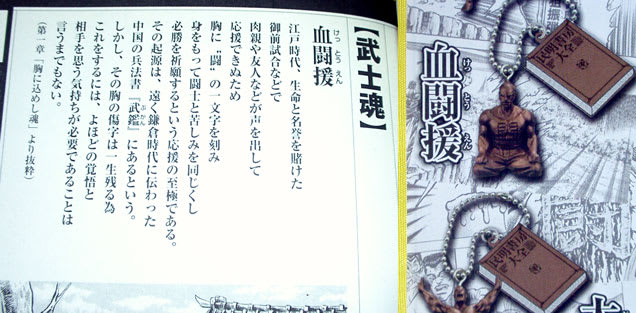 【武士魂】
けっとうえん
血闘援
江戸時代、生命と名誉を賭けた
御前試合などで
肉親や友人などが声を出して
応援できぬため
胸に〝闘〟の一文字を刻み
身をもって闘士と苦しみを同じくし
必勝を祈願するという応援の至極である。
その起源は、遠く鎌倉時代に伝わった
中国の兵法書『武鑑』にあるという。
ぶかん
しかし、その胸の傷字は一生残る為
これをするには、よほどの覚悟と
相手を思う気持ちが必要であることは
言うまでもない。
(第一章「胸に込めし魂」より抜粋)
民明書房
大全
けっとうえん
血闘援
民明書房
大全